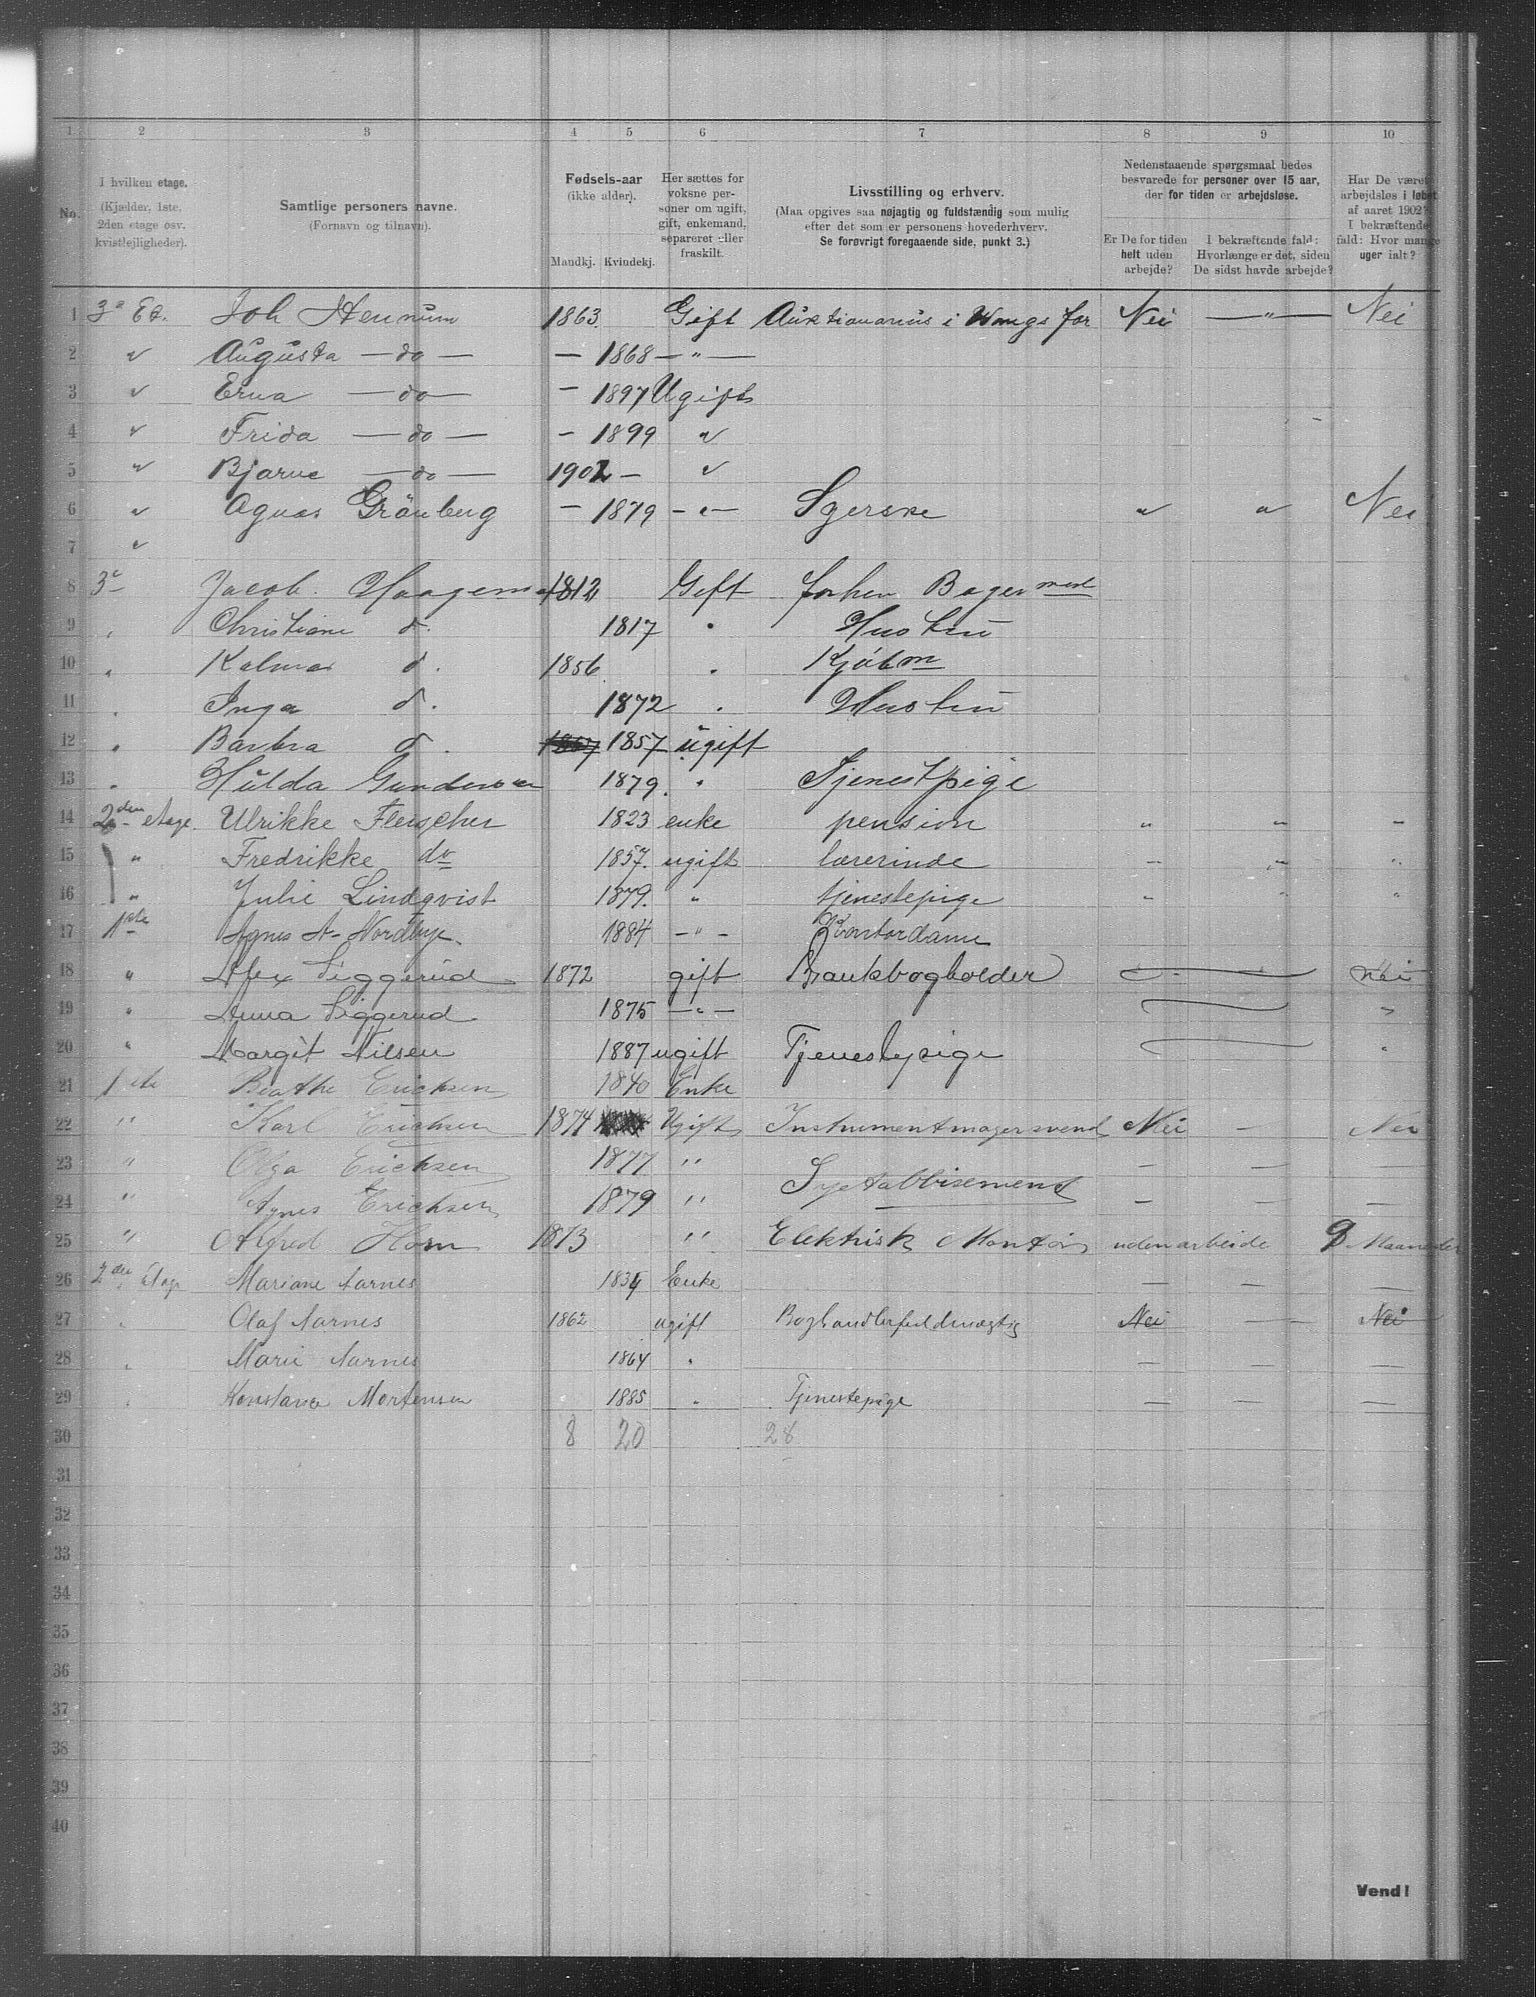 1 2 3 4 5 6 7 8 9 10
No.
I hvilken etage.
(Kjælder, 1ste, 2den etage osv. kvistlejligheder).
Samtlige personers navne.
(Fornavn og tilnavn).
Fødsels-aar
(ikke alder).
Mandkj. Kvindekj.
Her sættes for voksne personer om ugift, gift, enkemand, separeret eller fraskilt.
Livsstilling og erhverv.
(Maa opgives saa nøjagtig og fuldstændig som mulig efter det som er personens hovederhverv.
Se forøvrigt foregaaende side, punkt 3.)
Nedenstaaende spørgsmaal bedes besvarede for personer over 15 aar, der for tiden er arbejdsløse.
Er De for tiden helt uden arbejde?
I bekræftende fald: Hvorlænge er det, siden De sidst havde arbejde?
Har De været arbejdsløs i løbet af aaret 1902? I bekræftende fald: Hvor mange uger ialt?
1 3e Et. Joh Hennum 1863 Gift Auktionarius i Wangs for Nei — " — Nei
2 " Augusta — do — — 1868 — " —
3 " Erna — do — — 1897 Ugift
4 " Frida — do — — 1899 "
5 " Bjarne — do — 1902 — "
6 " Agnes Grönberg — 1879 — " — Syerske " " Nei
7 "
8 3e Jacob Haagensen 1812 Gift forhen Bagermest
9 " Christiane d. 1817 " Hustru
10 " Kalmar d. 1856 " Kjøbm
11 " Inga d. 1872 " Hustru
12 " Barbra d. 1857 1857 ugift
13 " Hulda Gundersen 1879. " Tjenestpige
14 2den etage. Ulrikke Fleischer 1823 enke pension " " "
15 " Fredrikke do 1857. ugift lærerinde " " "
16 " Julie Lindqvist 1879. " tjenestepige " " "
17 1ste Agnes A. Nordbye. 1884 — " — Kontordame
18 " Alex Siggerud 1872 gift Bankbogholder — nei
19 " Anna Siggerud 1875 — " — "
20 " Margit Nilsen 1887 ugift Tjenestepige "
21 1ste Beathe Erichsen 1840 Enke
22 " Karl Erichsen 1874 Ugift Instrumentmagersvend Nei — Nei
23 " Olga Erichsen 1877 " — — —
24 " Agnes Erichsen 1879 " Syetablisement — — —
25 " Alfred Horn 1873 " Elektrisk Montör uden arbeide 9 Maaneder
26 2den Etage Mariane Aarnes 1834 Enke — —
27 " Olaf Aarnes 1862 ugift Boghandlerfuldmægtig Nei — Nei
28 " Marie Aarnes 1864 " — — —
29 " Konstance Mortensen 1885 " Tjenestepige — — —
30 8 20 28
31
32
33
34
35
36
37
38
39
40
Vend!